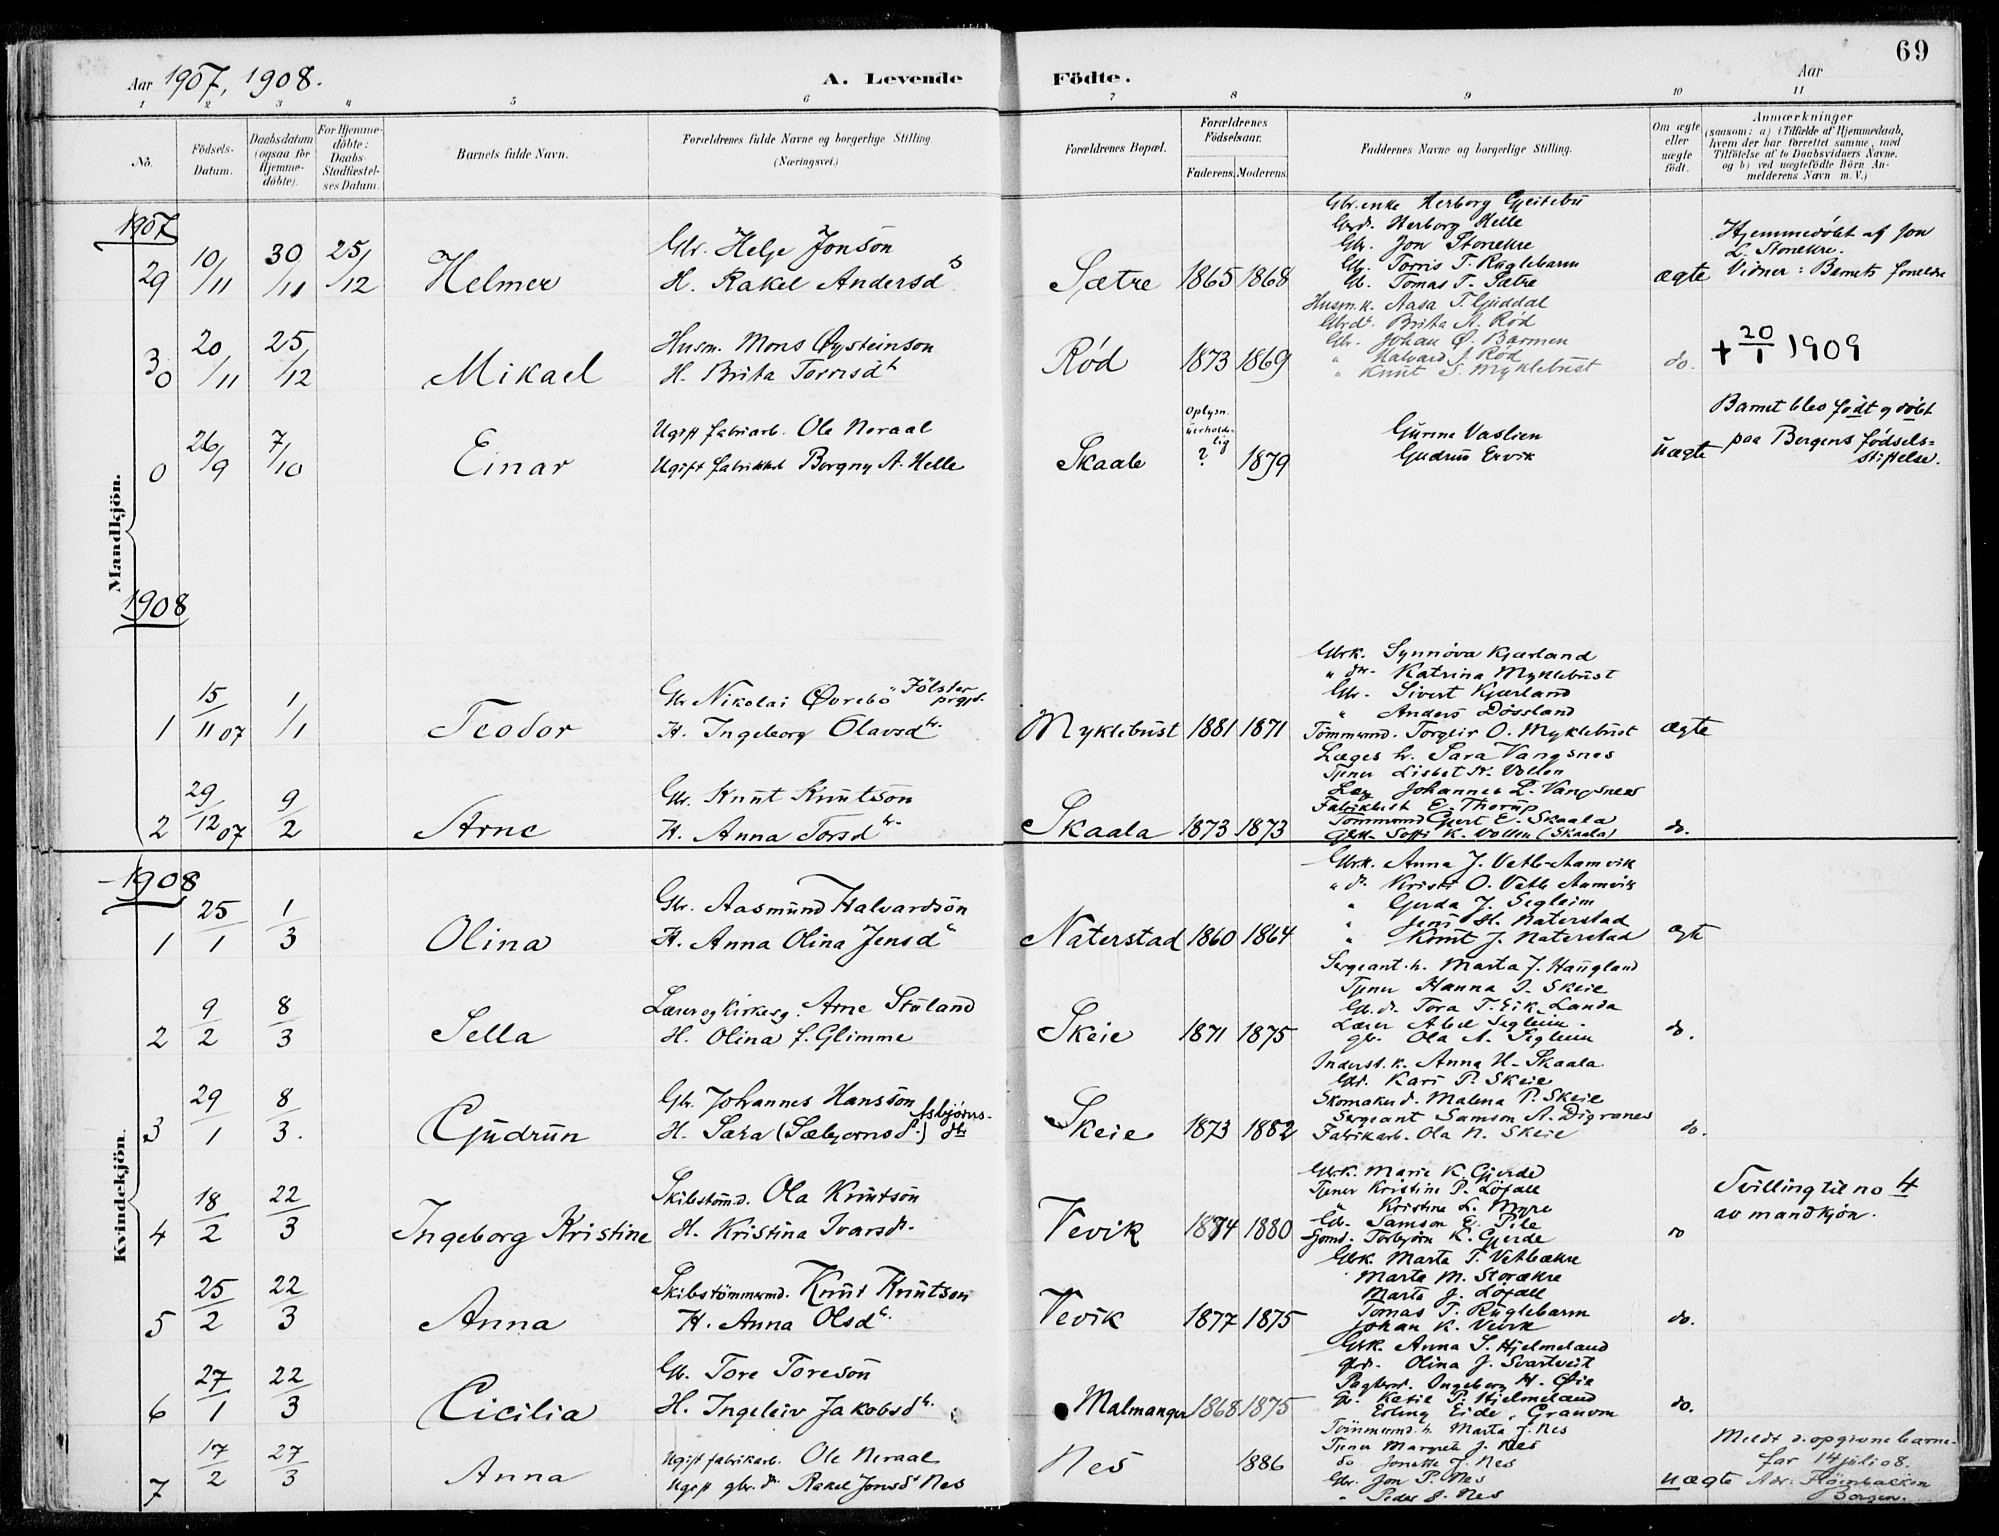 69
Aar 1907, 1908. A. Levende Födte. Aar
1 2 3 4 5 6 7 8 9 10 11
No. Födsels-Datum. Daabsdatum (ogsaa for Hjemme-döbte). For Hjemme-döbte: Daabs-Stadfæstel-ses Datum. Barnets fulde Navn. Forældrenes fulde Navne og borgerlige Stilling. (Næringsvei.) Forældrenes Bopæl. Forældrenes Födselsaar. Faderens. Moderens. Faddernes Navne og borgerlige Stilling. Om ægte eller uægte födt. Anmærkninger (saasom: a) i Tilfælde af Hjemmedaab, hvem der har forrettet samme, med Tilföielse af to Daabsvidners Navne, og b) ved uægtefödte Börn Anmelderens Navn m. V.)
Mandkjön.
1907
29 10/11 30/11 25/12 Helmer
Gbr. Helje Jonson
H. Rakel Andersd
Sætre 1865 1868
Gbr.enke Herborg Gjeitebu
Gbrd. Herborg Helle
Gbr. Jon Stonekre
Gbr. Torris T. Ruglebarm
Gb. Tomas T. Sætre
ægte
Hjemmedöbt af Jon
L. Stonekre.
Vidner: Barnets foreldre
30 20/11 25/12 Mikael
Husm. Mons Øysteinson
H. Brita Torrisdt
Rød 1873 1869
Husm.k. Aasa T. Guddal
Gbrdt. Brita A. Rød
Gbr. Johan Ø. Barmen
" Halvard J. Rød
" Knut S. Myklebust
do.
+ 20/1 1909
0 26/9 7/10 Einar
Ugift fabriarb. Ole Neraal
Ugift fabrikkt Borgny A. Helle
Skaale
Oplysn. uerholde-lig ? 1879
Gurine Vaslien
Gudrun Ervik
uægte
Barnet blev født g döbt
paa Bergens fødsels=
stiftelse.
1908
1 15/11 07 1/1 Teodor
Gbr Nikolai Øvrebø
H. Ingeborg Olavsdtr.
Myklebust 1881 1871
Gbrk. Synnöva Kjærland
" dtr. Katrina Myklebust
Gbr. Sivert Kjærland
" Anders Døssland
Tömmermd. Torgeir O. Myklebust
ægte
2 29/12 07 9/2 Arne
Gbr. Knut Knutson
H. Anna Torsdtr.
Skaala 1873 1873
Læges h. Sara Vangsnes
Tjener Lisbet K. Vollen
Læg Johannes L. Vangsnes
Fabrikbest E. Thorup
Tömmermd Gjert E. Skaala
Gbrk. Soffi K. Vollen (Skaala)
do.
Kvindekjön.
1908
1 25/1 1/3 Olina
Gbr. Aasmund Halvardson
H. Anna Olina Jensdt
Naterstad 1860 1864
Gbrk. Anna J. Vetle-Aamvik
" dt. Kristi O. Vetle Aamvik
" Gerda J. Segleim
" Jens H. Naterstad
" Knut J. Naterstad
ægte
2 9/2 8/3 Sella
Lærer og kirkesg. Arne Støland
H. Olina f. Glimme
Skeie 1871 1875
Sergeant.h. Marta J. Haugland
Tjener Hanna J. Skeie
Gb.dt. Tora T. Eik, Landa
Lærer Abel Segleim
gbr. Ola A. Segleim
do.
3 29/1 8/3. Gudrun
Gbr. Johannes Hansson
H. Sara (Sæbjørnsd.) Asbjørns-dtr
Skeie 1873 1882
Inderst.k. Anna H. Skaala
Gbr. Kari P. Skeie
Skomakerd. Malena P. Skeie
Sergeant Samson A. Digranes
Fabrikarb. Ola N. Skeie
do.
4 18/2 22/3 Ingeborg Kristine
Skibstömd. Ola Knutson
H. Kristina Ivarsdt.
Vevik 1874 1880
Gbrk. Marie K. Gjerde
Tjener Kristine P. Löfall
" Kristine L. Myre
Gb. Samson E. Pile
Torbjörn K. Gjerde
do
Tvilling til no 4
av mandkjön.
5 25/2 22/3 Anna
Skibstömmermd. Knut Knutson
H. Anna Olsdt.
Vevik 1877 1875
Gbrk. Marta T. Vetleekre
Marta M. Storækre
Marta J. Löfall
Tomas T. Ruglebarm
Johan K. Vevik
do.
6 27/1 22/3 Cicilia
Gb. Tore Toreson
H. Ingeleiv Jakobsdt.
Malmanger 1868 1875
Gbrk. Anna S. Hjelmeland
gbrd. Olina J. Svartveit
Pagterd. Ingeborg H. Øie
Gbr. Ketil P. Hjelmeland
Erling Eide, Granvin
do.
7 17/2 27/3 Anna
Ugift fabrikarb. Ole Neraal
Ugift gbr.dt. Rakel Jonsdt Nes
Nes 1886
Tömmermd.h. Marta J. Nes
Tjener Margreta J. Nes
do Jonette J. Nes
Gbr. Jon P. Nes
" Peder J. Nes
uægte
Meldt d. opgivne barne-
far 14 juli 08.
Adr: Fløienbakken
Bergen.